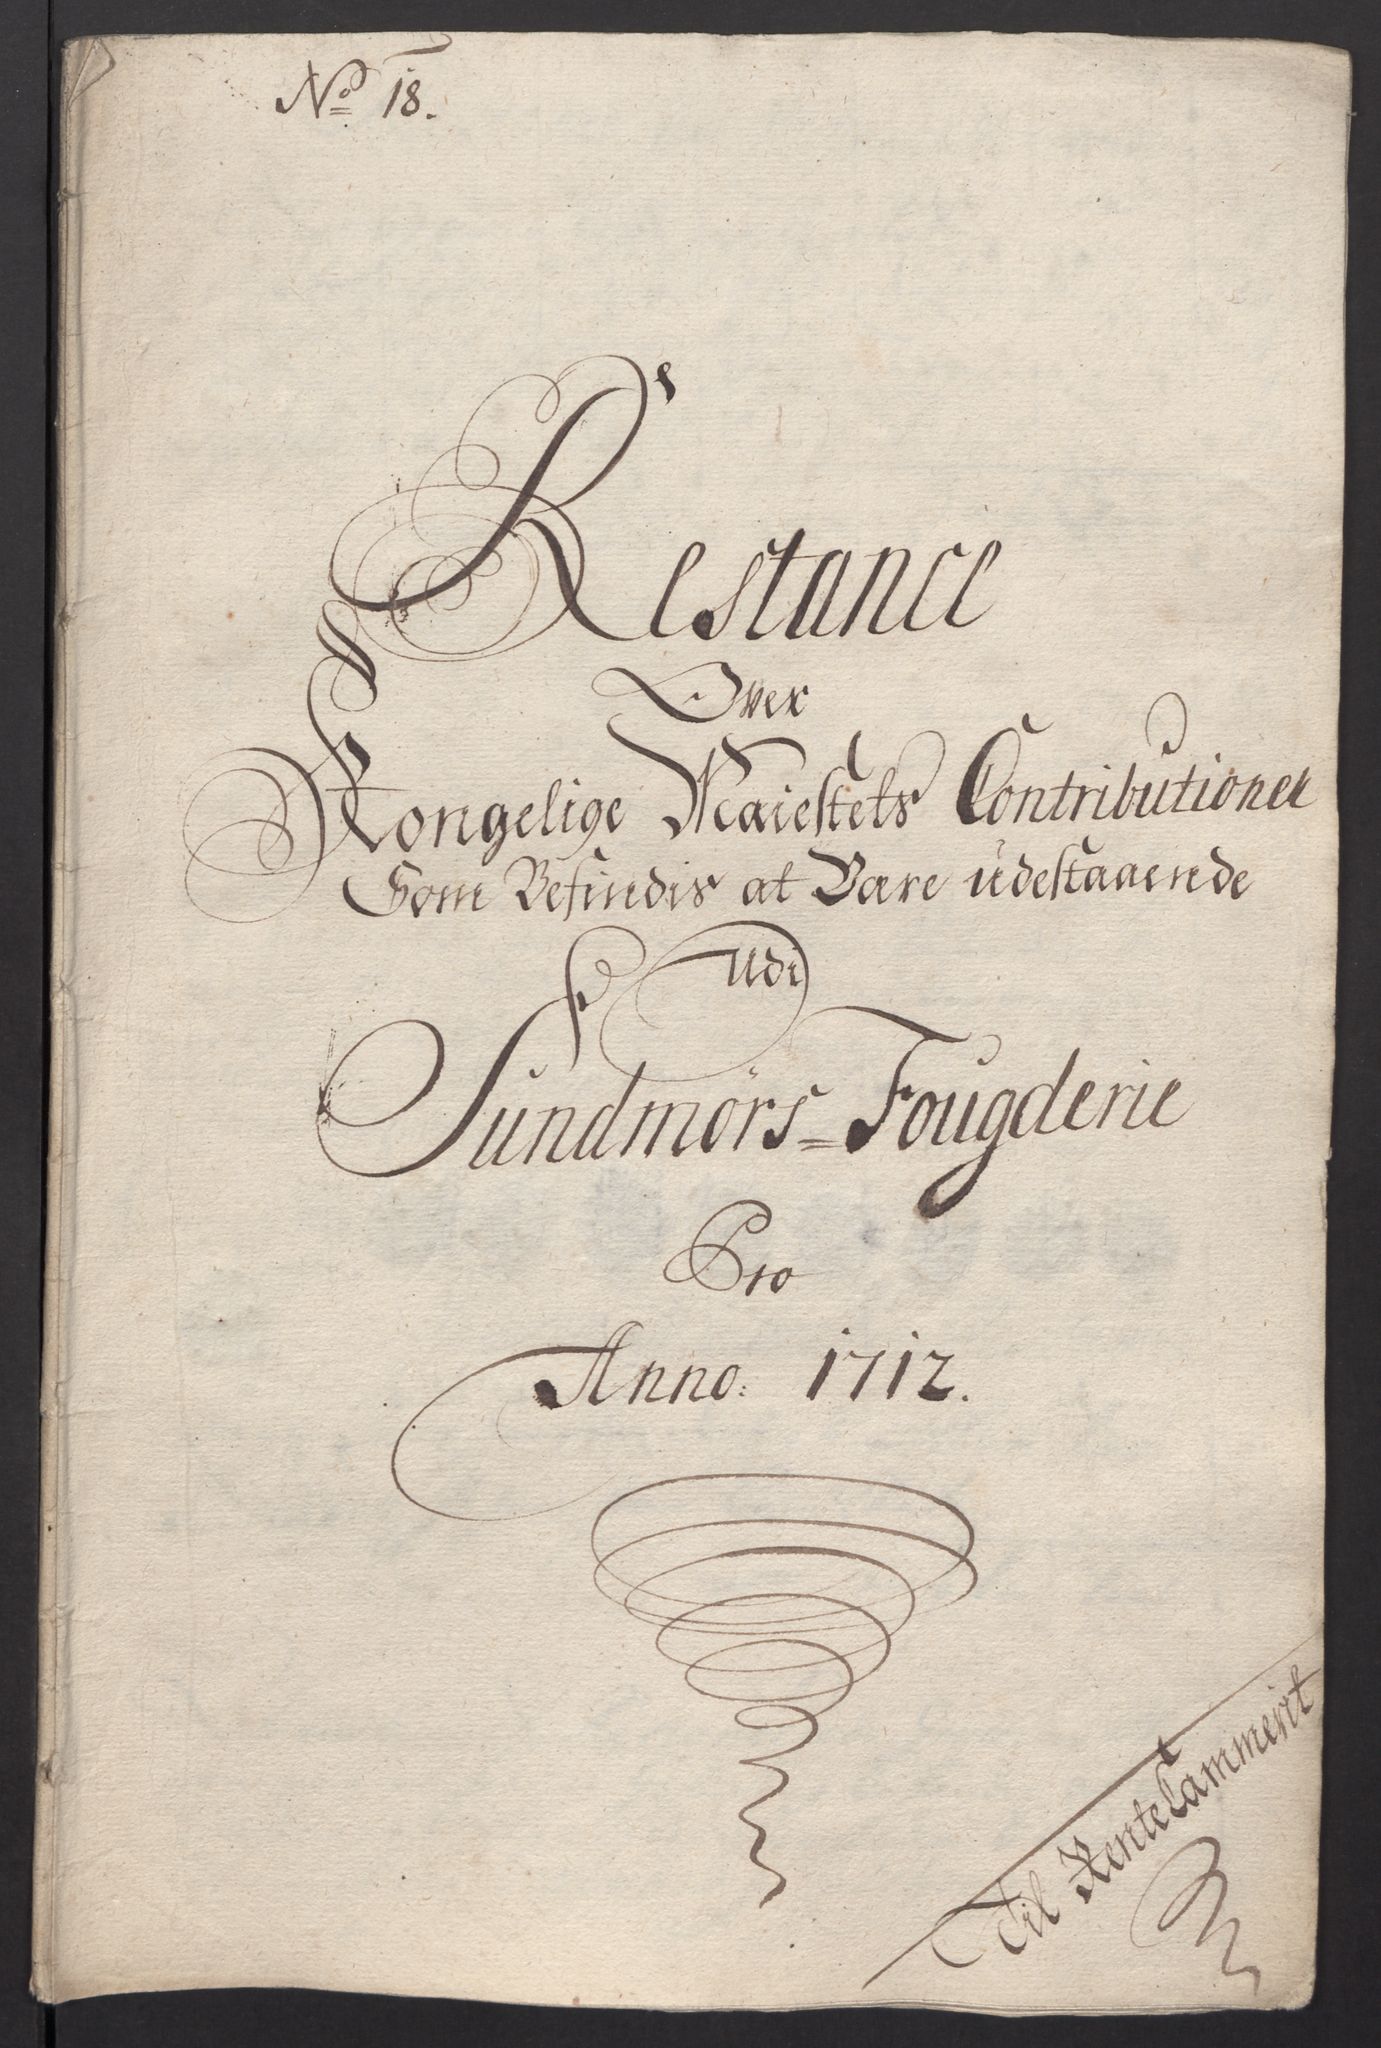 No 18.
Restance
Over
Kongelige Maiestets Contributioner
Som Befindis at Være udestaaende
Udi
Sundmørs=Fougderie
Pro
Anno: 1712.
Til Rentecammerit